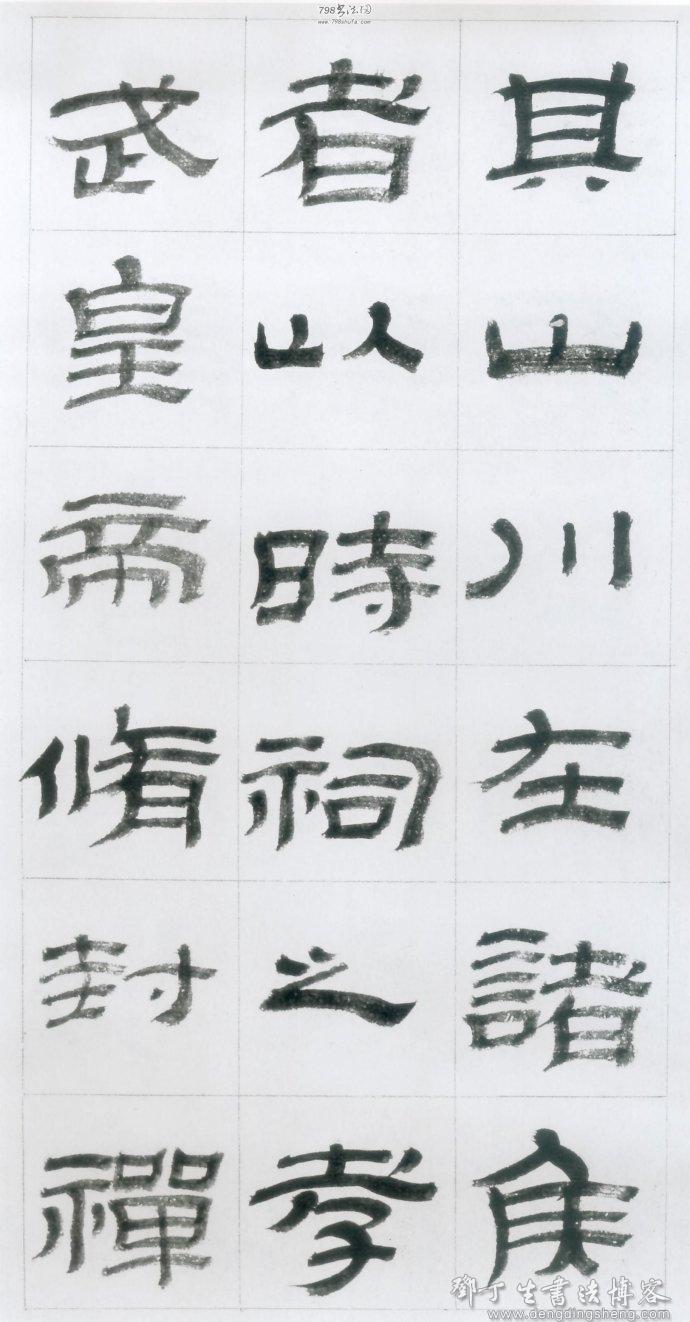 798书法网
www.798shufa.com
其山川在諸侯
者以時祠之孝
武皇帝脩封禪
鄧丁生書法博客
www.dengdingsheng.com